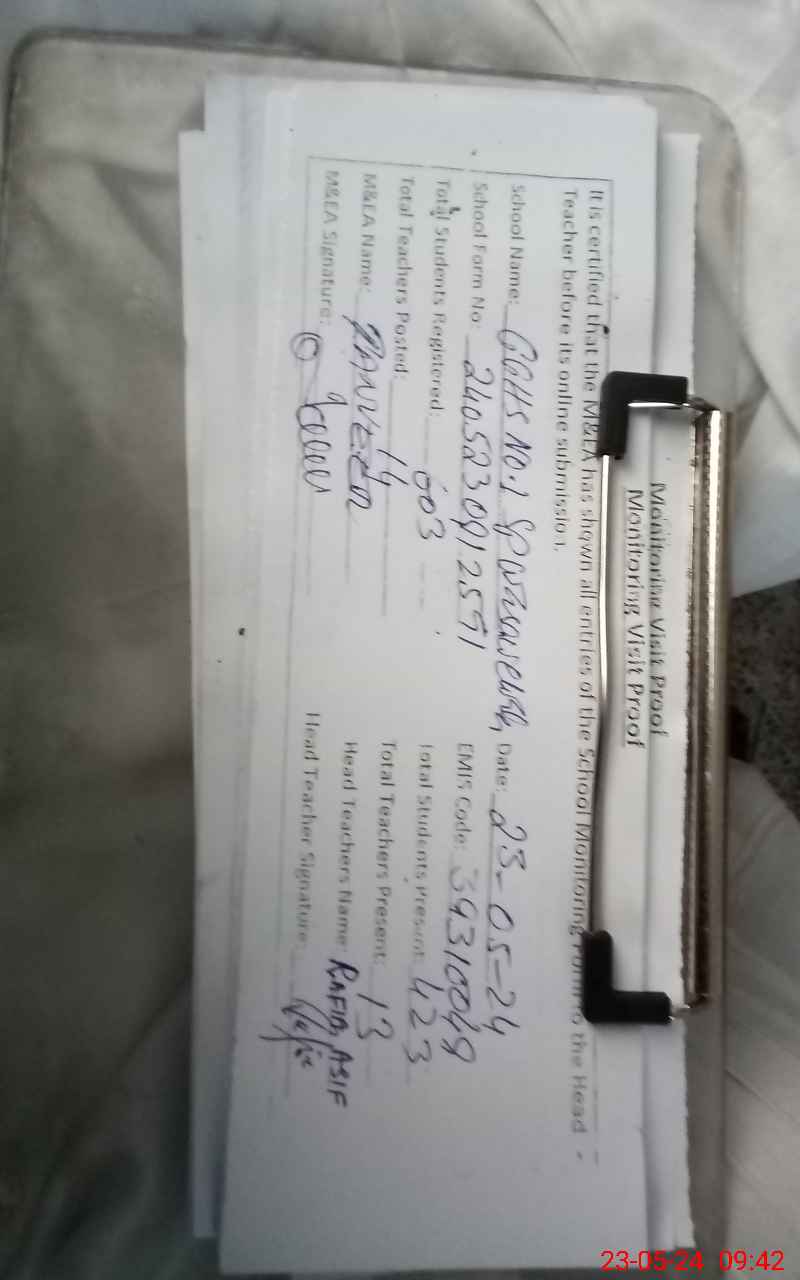 Monitoring Visit Proof
Monitoring Visit Proof
It is certified that the M&EA has shown all entries of the School Monitoring Form to the Head
Teacher before its online submission.
School Name: GGHS NO.1 Date: 23-05-24
School Form No: 2405230912591 EMIS Code: 39310049
Total Students Registered: 603 Total Students Present: 423
Total Teachers Posted: 14 Total Teachers Present: 13
M&EA Name: Head Teachers Name: RAFIA ASIF
M&EA Signature: Head Teacher Signature:
23-05-24 09:42